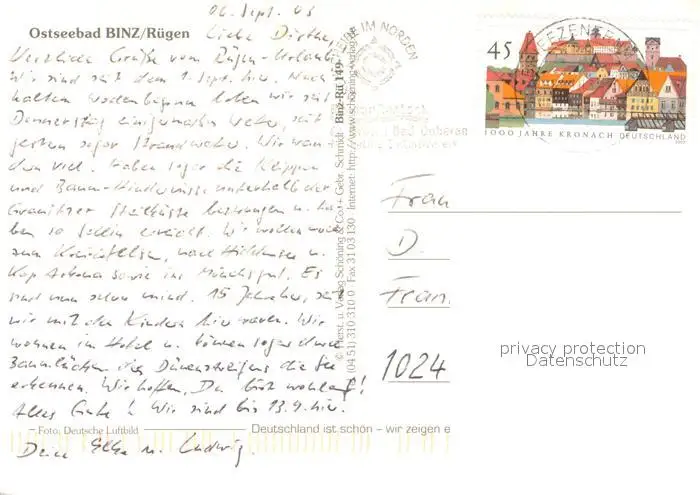 06. Sept. 03
Ostseebad BINZ/Rügen
Liebe Dörthe,
Herzliche Grüße vom Rügen-Urlaub!
Wir sind seit dem 1. Sept. hier. Nach
kaltem Wochenbeginn haben wir seit
Donnerstag einigermaßen Wetter, seit
gestern sogar Strandwetter. Wir wan-
dern viel. Haben sogar die Klippen
und Baum-Hindernisse unterhalb der
Granitzer Steilküste bezwungen u. ha-
ben so Sellin erreicht. Wir wollen noch
zum Königsstuhl, nach Hiddensee u.
Kap Arkona sowie ins Mönchsgut. Es
sind nun schon mind. 15 Jahre her, seit
wir mit den Kindern hier waren. Wir
wohnen im Hotel u. können sogar durch
Baumlücken des Dünensteiges die See
erkennen. Wir hoffen, Du bist wohlauf!
Alles Gute! Wir sind bis 13.9. hier.
Deine Elke u. Ludwig.
– Foto: Deutsche Luftbild
Deutschland ist schön – wir zeigen e
© Herst. u. Verlag Schöning & Co. + Gebr. Schmidt Binz-Rü 149
(04 51) 310 310 0 · Fax 31 03 130 · Internet: http://www.schoening-verlag.de
IM NORDEN
45
1000 JAHRE KRONACH DEUTSCHLAND
2003
Frau
D.
Fran
1024
privacy protection
Datenschutz